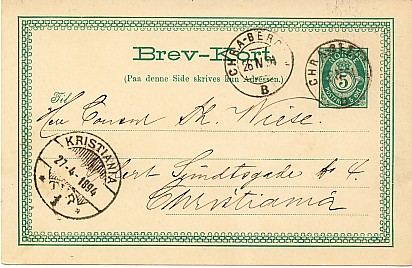 Brev-Kort
(Paa denne Side skrives kun Adressen.)
CHRA-BERG
26 IV 94
B
CHRA-BERG
5
Til
Consul Th. Wiese.
KRISTIANIA
27-4-1894
Gjündtsgade № 4
Christiania